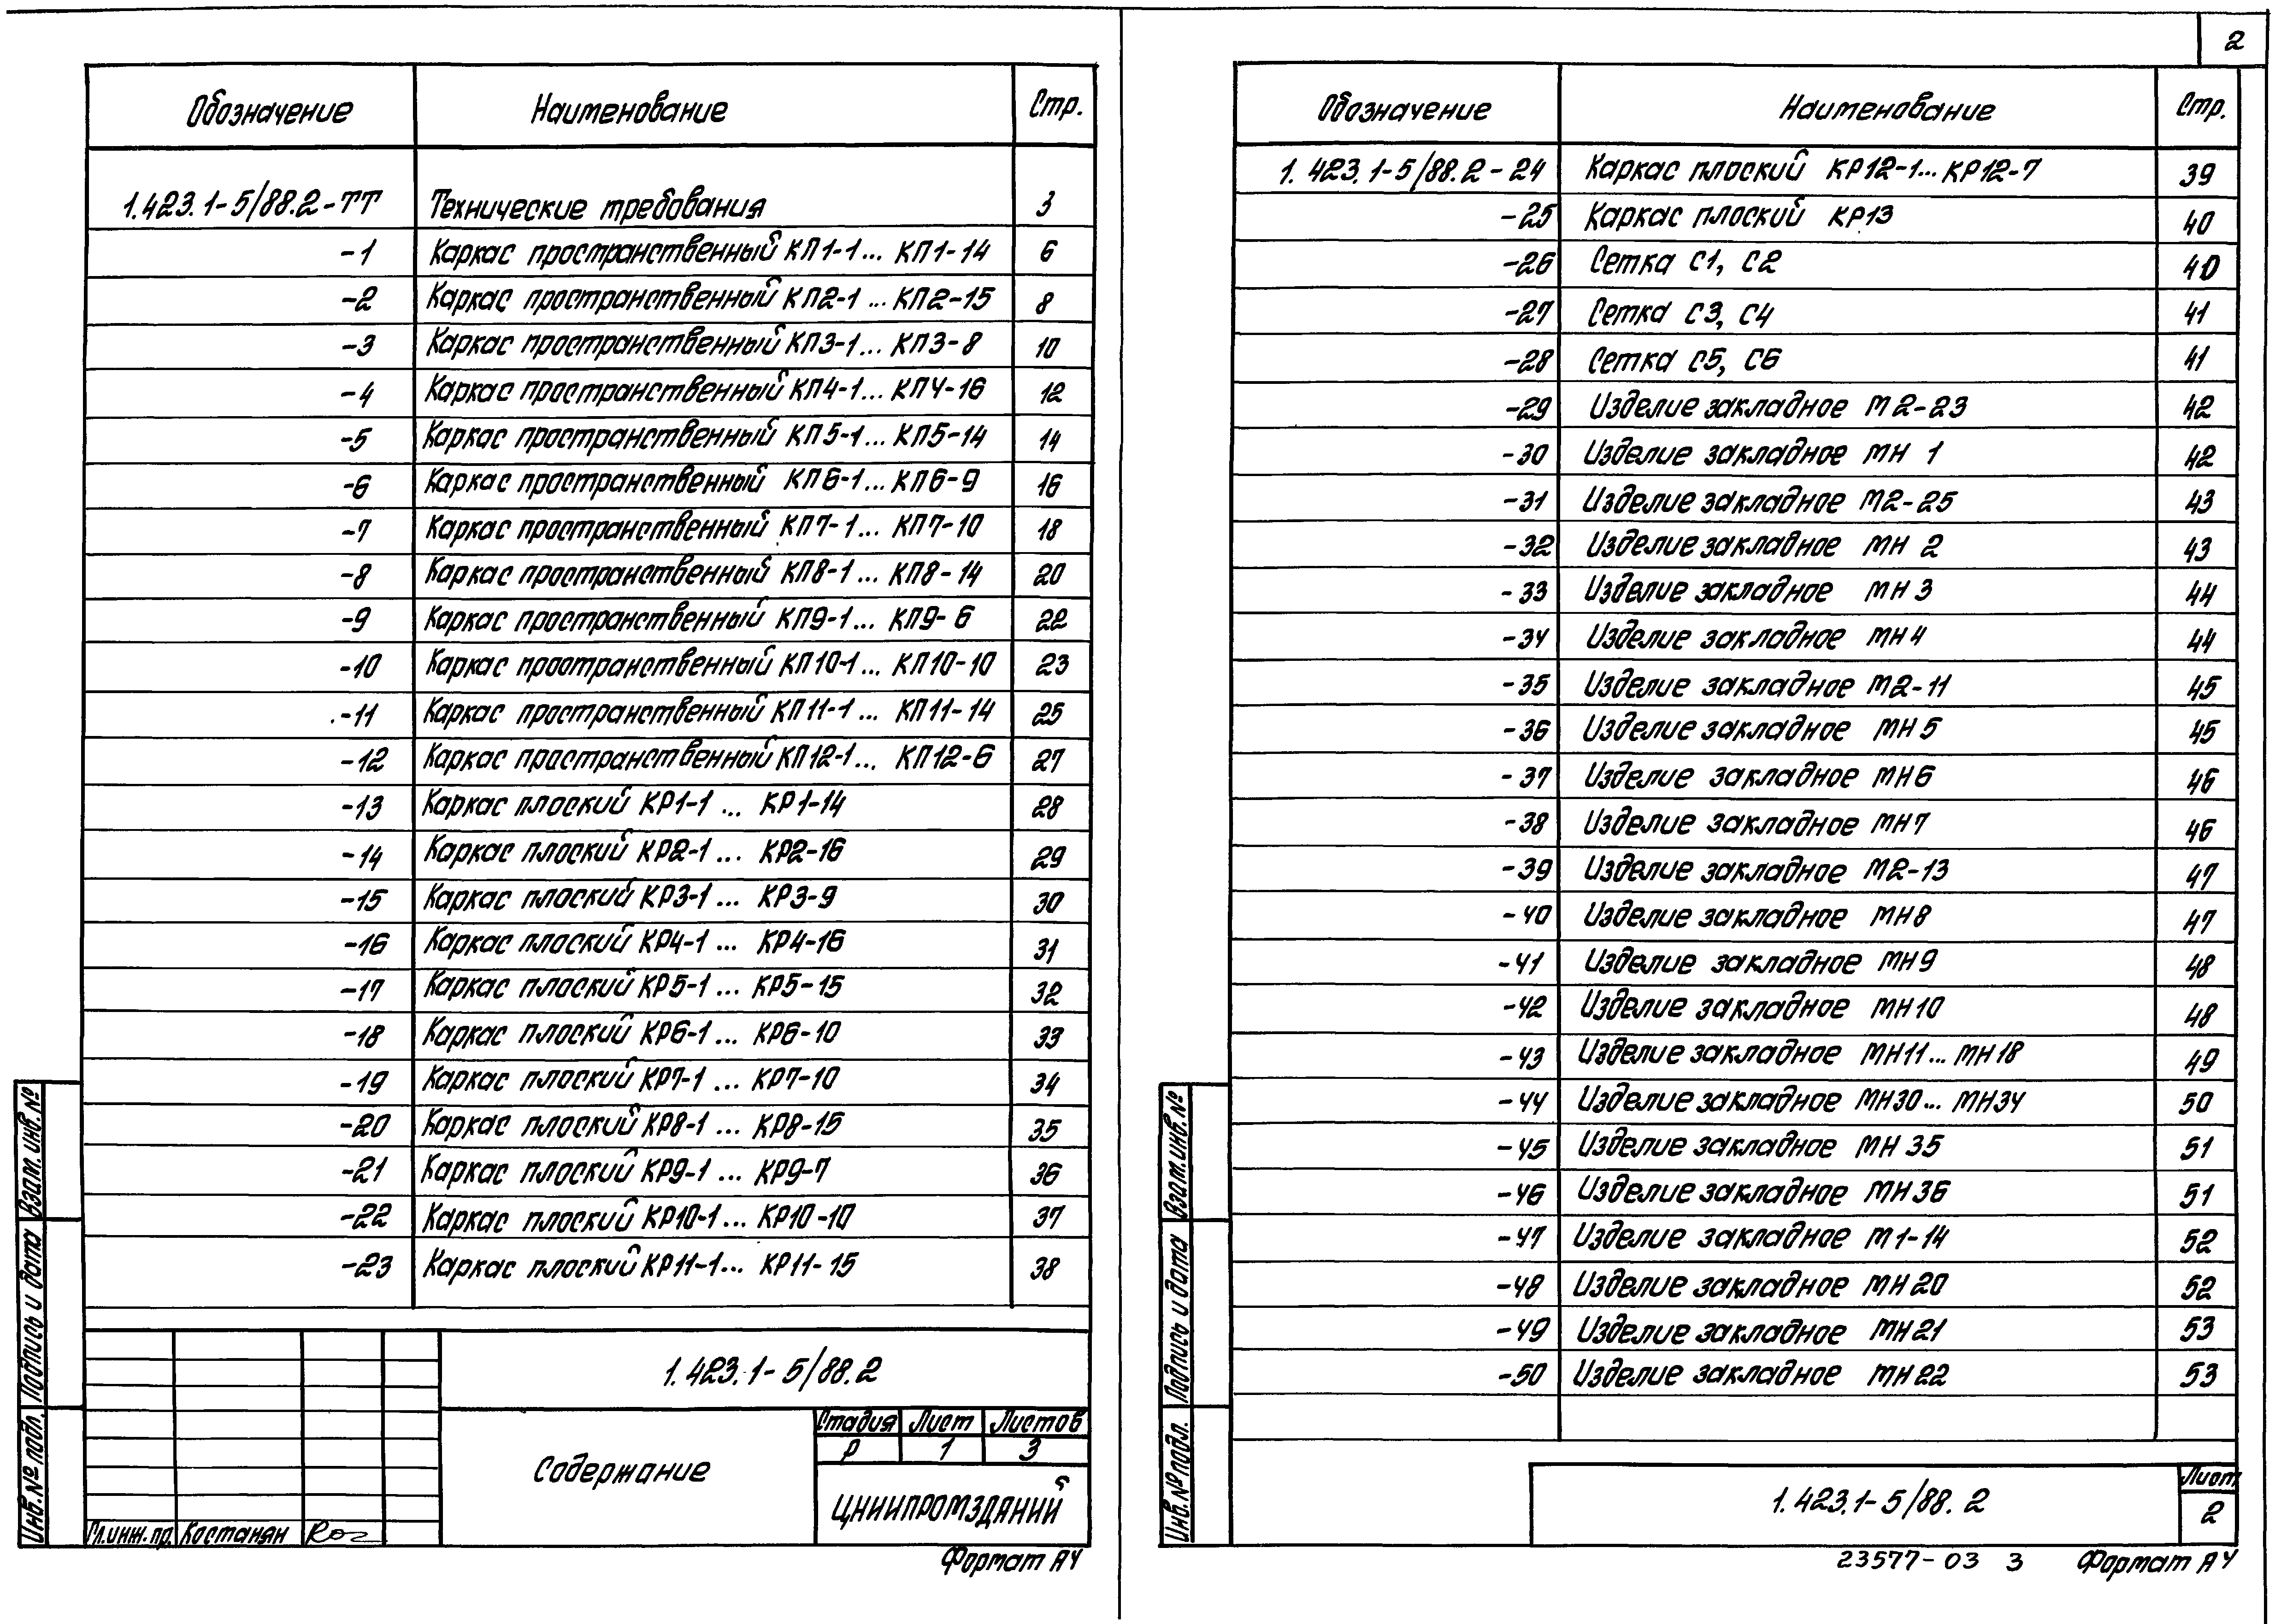 Обозначение Наименование Стр.
1.423.1-5/88.2-ТТ Технические требования 3
-1 Каркас пространственный КП1-1... КП1-14 6
-2 Каркас пространственный КП2-1 ... КП2-15 8
-3 Каркас пространственный КП3-1... КП3-8 10
-4 Каркас пространственный КП4-1... КП4-16 12
-5 Каркас пространственный КП5-1... КП5-14 14
-6 Каркас пространственный КП6-1... КП6-9 16
-7 Каркас пространственный КП7-1... КП7-10 18
-8 Каркас пространственный КП8-1 ... КП8-14 20
-9 Каркас пространственный КП9-1... КП9-6 22
-10 Каркас пространственный КП10-1... КП10-10 23
-11 Каркас пространственный КП11-1 ... КП11-14 25
-12 Каркас пространственный КП12-1... КП12-6 27
-13 Каркас плоский КР1-1 ... КР1-14 28
-14 Каркас плоский КР2-1 ... КР2-16 29
-15 Каркас плоский КР3-1 ... КР3-9 30
-16 Каркас плоский КР4-1 ... КР4-16 31
-17 Каркас плоский КР5-1 ... КР5-15 32
-18 Каркас плоский КР6-1 ... КР6-10 33
-19 Каркас плоский КР7-1 ... КР7-10 34
-20 Каркас плоский КР8-1 ... КР8-15 35
-21 Каркас плоский КР9-1 ... КР9-7 36
-22 Каркас плоский КР10-1 ... КР10-10 37
-23 Каркас плоский КР11-1... КР11-15 38
1.423.1-5/88.2
Содержание
Стадия Лист Листов
Р 1 3
ЦНИИПРОМЗДАНИЙ
Гл.инж.пр. Костанян
Формат А4
Взам.инв.№
Подпись и дата
Инв.№ подл.
2
Обозначение Наименование Стр.
1.423.1-5/88.2-24 Каркас плоский КР12-1... КР12-7 39
-25 Каркас плоский КР13 40
-26 Сетка С1, С2 40
-27 Сетка С3, С4 41
-28 Сетка С5, С6 41
-29 Изделие закладное М2-23 42
-30 Изделие закладное МН 1 42
-31 Изделие закладное М2-25 43
-32 Изделие закладное МН 2 43
-33 Изделие закладное МН 3 44
-34 Изделие закладное МН4 44
-35 Изделие закладное М2-11 45
-36 Изделие закладное МН5 45
-37 Изделие закладное МН6 46
-38 Изделие закладное МН7 46
-39 Изделие закладное М2-13 47
-40 Изделие закладное МН8 47
-41 Изделие закладное МН9 48
-42 Изделие закладное МН10 48
-43 Изделие закладное МН11... МН18 49
-44 Изделие закладное МН30... МН34 50
-45 Изделие закладное МН 35 51
-46 Изделие закладное МН36 51
-47 Изделие закладное М1-14 52
-48 Изделие закладное МН20 52
-49 Изделие закладное МН21 53
-50 Изделие закладное МН22 53
1.423.1-5/88.2
Лист
2
23577-03 3 Формат А4
Взам.инв.№
Подпись и дата
Инв.№ подл.